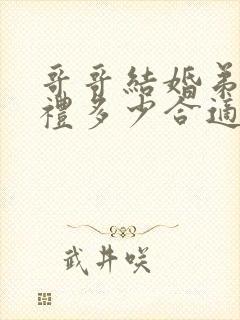 哥哥結婚弟
禮多少合適
武井咲